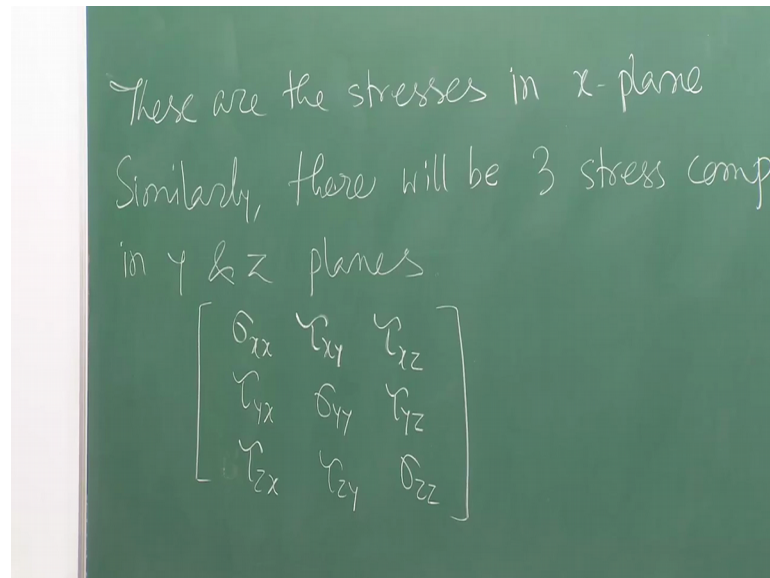 These are the stresses in x-plane
Similarly, there will be 3 stress comp
in y & z planes.
σxx τxy τxz
τyx σyy τyz
τzx τzy σzz